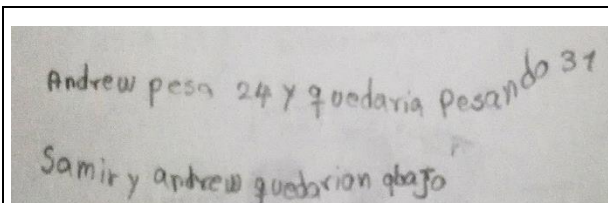 Andrew pesa 24 y quedaria pesando 31
Samir y andrew quedarian abajo